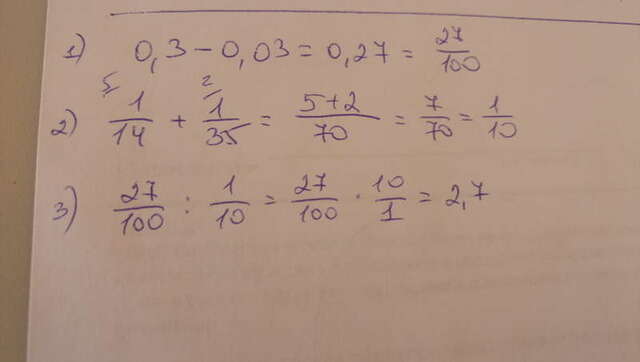 1) 0,3 - 0,03 = 0,27 = 27/100
2) 5 1/14 + 2 1/35 = 5+2/70 = 7/70 = 1/10
3) 27/100 : 1/10 = 27/100 · 10/1 = 2,7